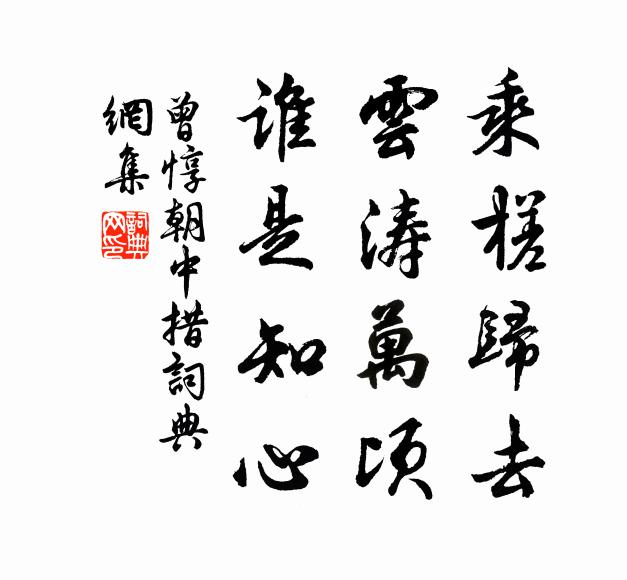 乘槎歸去
雲涛萬頃
誰是知心
曾惇朝中措詞典
網集
詞典
网印